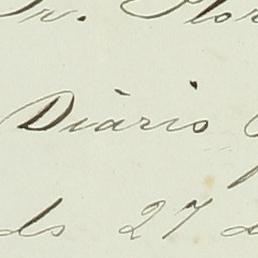 Sr. Flor
Diário
ds 27 d